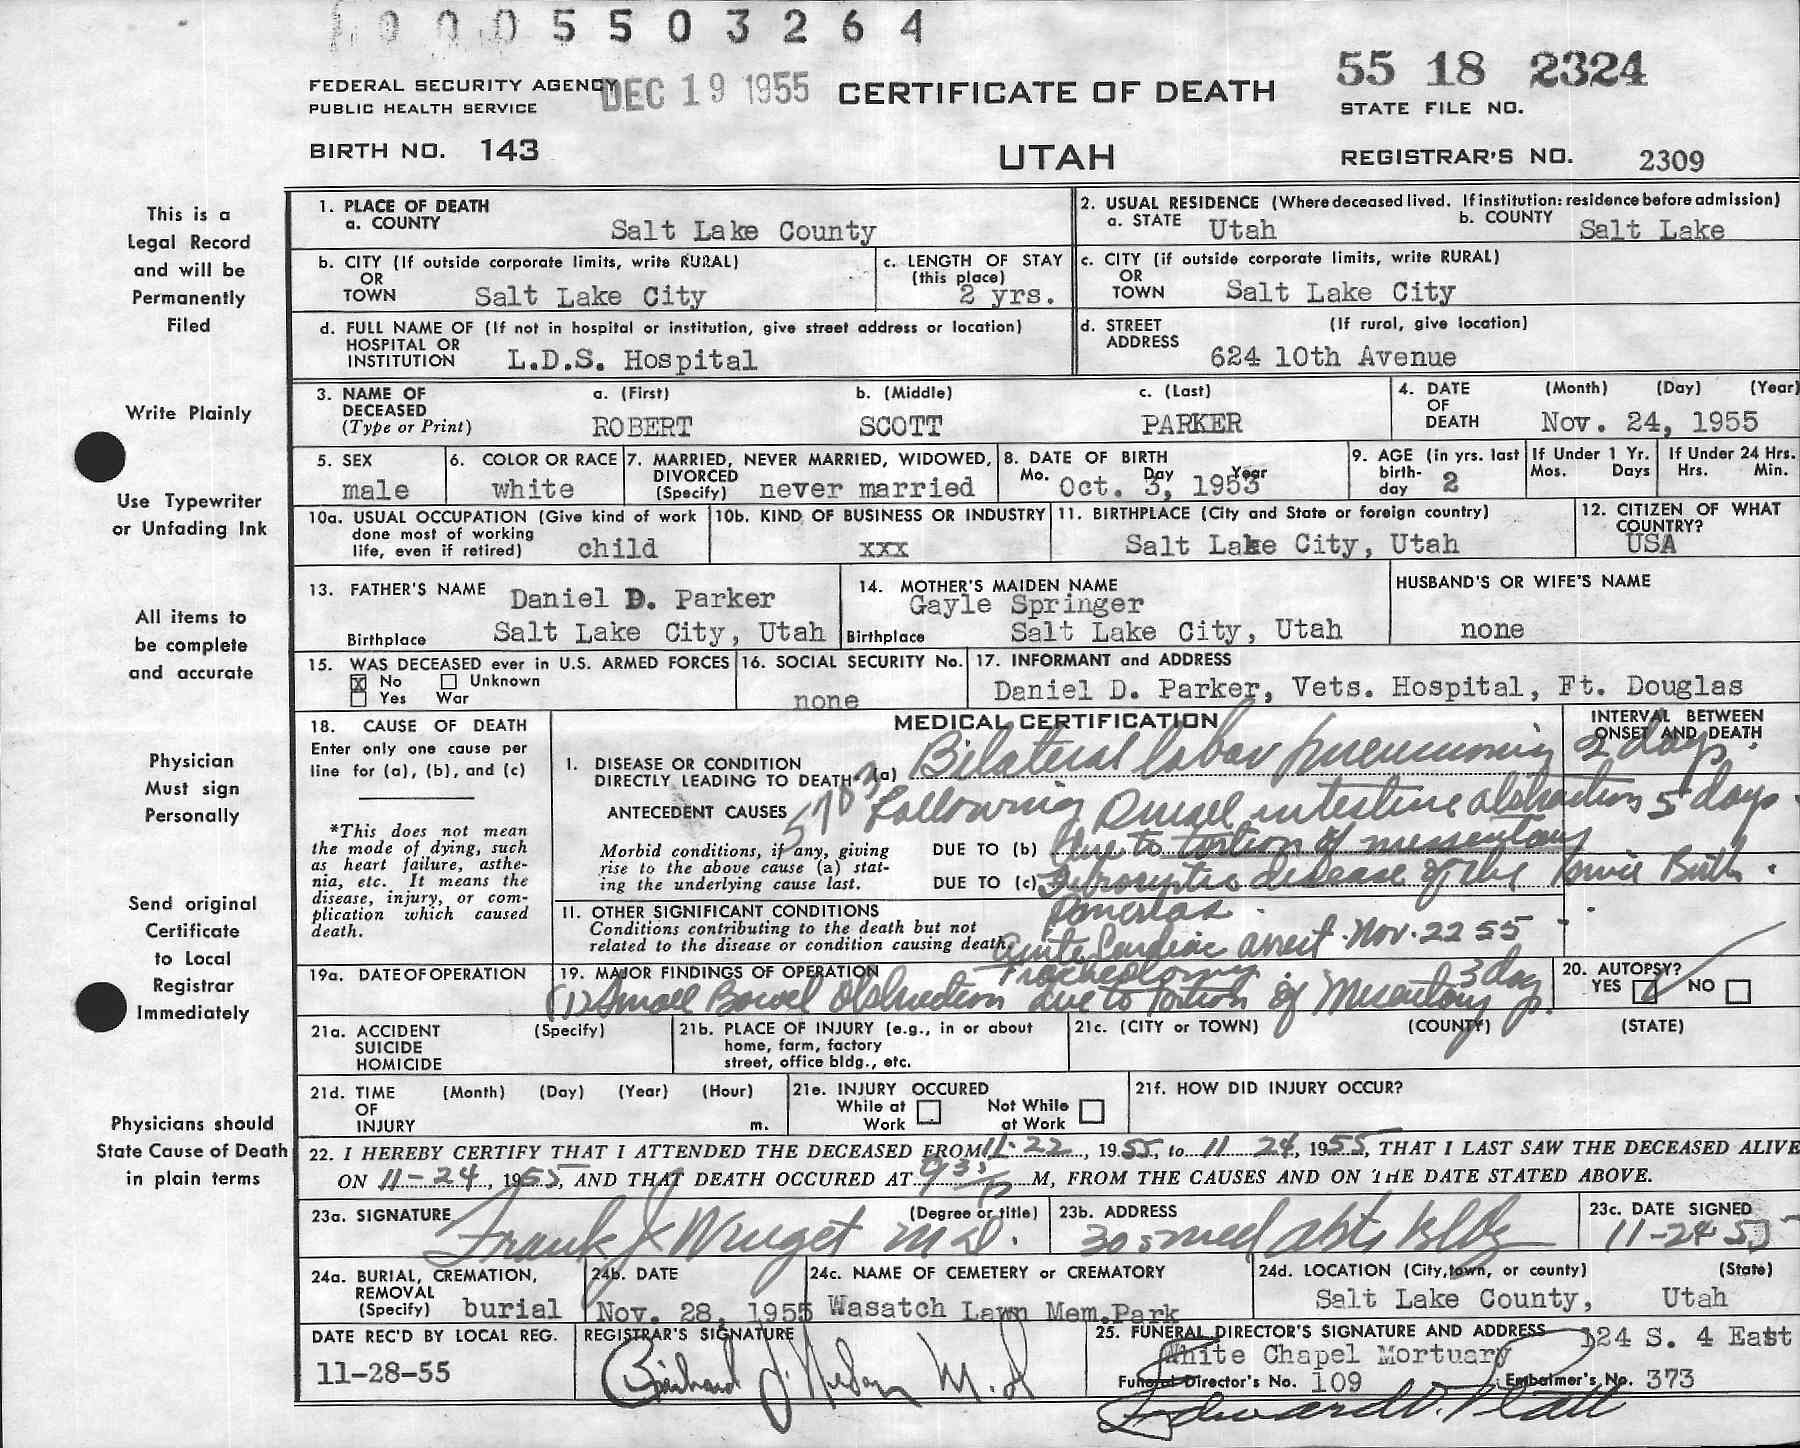 0005503264
FEDERAL SECURITY AGENCY
PUBLIC HEALTH SERVICE
DEC 19 1955
CERTIFICATE OF DEATH
55 18 2324
STATE FILE NO.
BIRTH NO. 143
UTAH
REGISTRAR'S NO. 2309
This is a
Legal Record
and will be
Permanently
Filed
Write Plainly
Use Typewriter
or Unfading Ink
All items to
be complete
and accurate
Physician
Must sign
Personally
Send original
Certificate
to Local
Registrar
Immediately
Physicians should
State Cause of Death
in plain terms
1. PLACE OF DEATH
a. COUNTY Salt Lake County
2. USUAL RESIDENCE (Where deceased lived. If institution: residence before admission)
a. STATE Utah b. COUNTY Salt Lake
b. CITY (If outside corporate limits, write RURAL)
OR
TOWN Salt Lake City
c. LENGTH OF STAY
(this place)
2 yrs.
c. CITY (if outside corporate limits, write RURAL)
OR
TOWN Salt Lake City
d. FULL NAME OF (If not in hospital or institution, give street address or location)
HOSPITAL OR
INSTITUTION L.D.S. Hospital
d. STREET (If rural, give location)
ADDRESS
624 10th Avenue
3. NAME OF
DECEASED
(Type or Print)
a. (First) b. (Middle) c. (Last)
ROBERT SCOTT PARKER
4. DATE (Month) (Day) (Year)
OF
DEATH Nov. 24, 1955
5. SEX
male
6. COLOR OR RACE
white
7. MARRIED, NEVER MARRIED, WIDOWED,
DIVORCED
(Specify) never married
8. DATE OF BIRTH
Mo. Day Year
Oct. 3, 1953
9. AGE (in yrs. last
birth-
day 2
If Under 1 Yr.
Mos. Days
If Under 24 Hrs.
Hrs. Min.
10a. USUAL OCCUPATION (Give kind of work
done most of working
life, even if retired) child
10b. KIND OF BUSINESS OR INDUSTRY
xxx
11. BIRTHPLACE (City and State or foreign country)
Salt Lake City, Utah
12. CITIZEN OF WHAT
COUNTRY?
USA
13. FATHER'S NAME Daniel D. Parker
Birthplace Salt Lake City, Utah
14. MOTHER'S MAIDEN NAME
Gayle Springer
Birthplace Salt Lake City, Utah
HUSBAND'S OR WIFE'S NAME
none
15. WAS DECEASED ever in U.S. ARMED FORCES
x No Unknown
Yes War
16. SOCIAL SECURITY No.
none
17. INFORMANT and ADDRESS
Daniel D. Parker, Vets. Hospital, Ft. Douglas
18. CAUSE OF DEATH
Enter only one cause per
line for (a), (b), and (c)
*This does not mean
the mode of dying, such
as heart failure, asthe-
nia, etc. It means the
disease, injury, or com-
plication which caused
death.
MEDICAL CERTIFICATION
INTERVAL BETWEEN
ONSET AND DEATH
1. DISEASE OR CONDITION
DIRECTLY LEADING TO DEATH* (a) Bilateral lobar pneumonia 2 days.
5703
ANTECEDENT CAUSES Following Small intestine obstruction 5 days
Morbid conditions, if any, giving
rise to the above cause (a) stat-
ing the underlying cause last.
DUE TO (b) Due to tortion of mesentary
DUE TO (c) disease of the Since Birth.
Pancreas.
11. OTHER SIGNIFICANT CONDITIONS
Conditions contributing to the death but not
related to the disease or condition causing death.
Acute Cardiac arrest. Nov. 22 55
19a. DATE OF OPERATION
19. MAJOR FINDINGS OF OPERATION Tracheotomy
(1) Small Bowel Obstruction due to tortion of Mesentary 3 days.
20. AUTOPSY?
YES NO
21a. ACCIDENT (Specify)
SUICIDE
HOMICIDE
21b. PLACE OF INJURY (e.g., in or about
home, farm, factory
street, office bldg., etc.
21c. (CITY or TOWN) (COUNTY) (STATE)
21d. TIME (Month) (Day) (Year) (Hour)
OF
INJURY m.
21e. INJURY OCCURED
While at Not While
Work at Work
21f. HOW DID INJURY OCCUR?
22. I HEREBY CERTIFY THAT I ATTENDED THE DECEASED FROM 11-22, 1955, to 11 24, 1955, THAT I LAST SAW THE DECEASED ALIVE
ON 11-24, 1955, AND THAT DEATH OCCURED AT 935 P M, FROM THE CAUSES AND ON THE DATE STATED ABOVE.
23a. SIGNATURE (Degree or title)
Frank J Winget MD.
23b. ADDRESS
305 Med Arts Bldg
23c. DATE SIGNED
11-24-55
24a. BURIAL, CREMATION,
REMOVAL
(Specify) burial
24b. DATE
Nov. 28, 1955
24c. NAME OF CEMETERY or CREMATORY
Wasatch Lawn Mem.Park
24d. LOCATION (City, town, or county) (State)
Salt Lake County, Utah
DATE REC'D BY LOCAL REG.
11-28-55
REGISTRAR'S SIGNATURE
M.D
25. FUNERAL DIRECTOR'S SIGNATURE AND ADDRESS 124 S. 4 East
White Chapel Mortuary
Funeral Director's No. 109 Embalmer's No. 373
Edward D. Platt